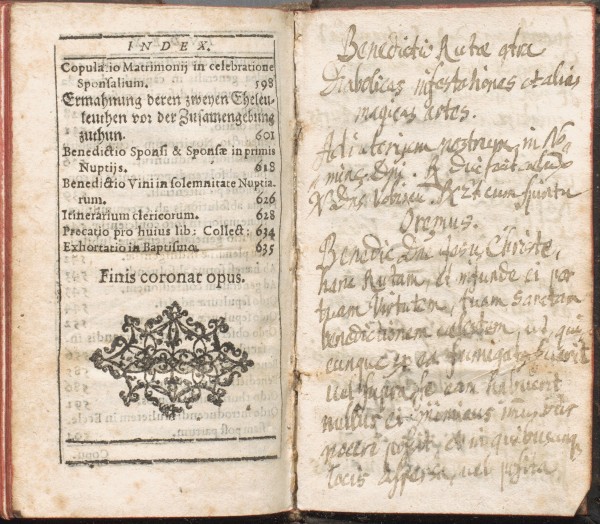 INDEX.
Copulatio Matrimonij in celebratione
Sponsalium. 598
Ermahnung deren zweyen Eheleu-
leuthen vor der Zusamengebung
zuthun. 601
Benedictio Sponsi & Sponsæ in primis
Nuptijs. 618
Benedictio Vini in solemnitate Nuptia-
rum. 626
Itinerarium clericorum. 628
Precatio pro huius lib: Collect: 634
Exhortatio in Baptismo. 635
Finis coronat opus.
Benedictio Rutæ contra
Diabolicas infestationes et alias
magicas artes.
Adiutorium nostrum in No-
mine Dñi. R. Qui fecit
V. Dñs Vobiscū. R. Et cum spiritu
Oremus.
Benedic Dñe Jesu Christe,
hanc Rutam, et infunde ei per
tuam Virtutem, tuam sanctam
benedictionem cœlestem, ut, qui
cunque ex ea fumigatus fuerit
vel supra se eam habuerit
nullus ei inimicus
nocere possit, et in quibuscunq
locis aspersa, vel posita